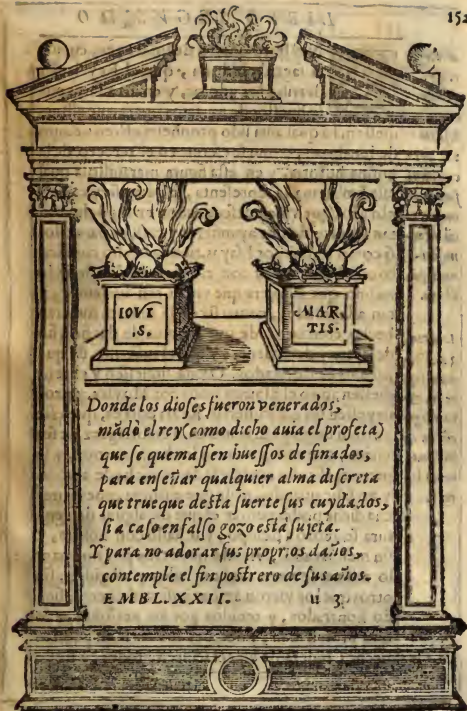 152
IOVI
.S.
MAR
TIS.
Donde los dioses fueron venerados,
mãdò el rey (como dicho auia el profeta)
que se quemassen huessos de finados,
para enseñar qualquier alma discreta
que trueque desta suerte sus cuydados,
si a caso en falso gozo està sujeta.
Y para no adorar sus proprios daños,
contemple el fin postrero de sus años.
EMBL. XXII. u 3